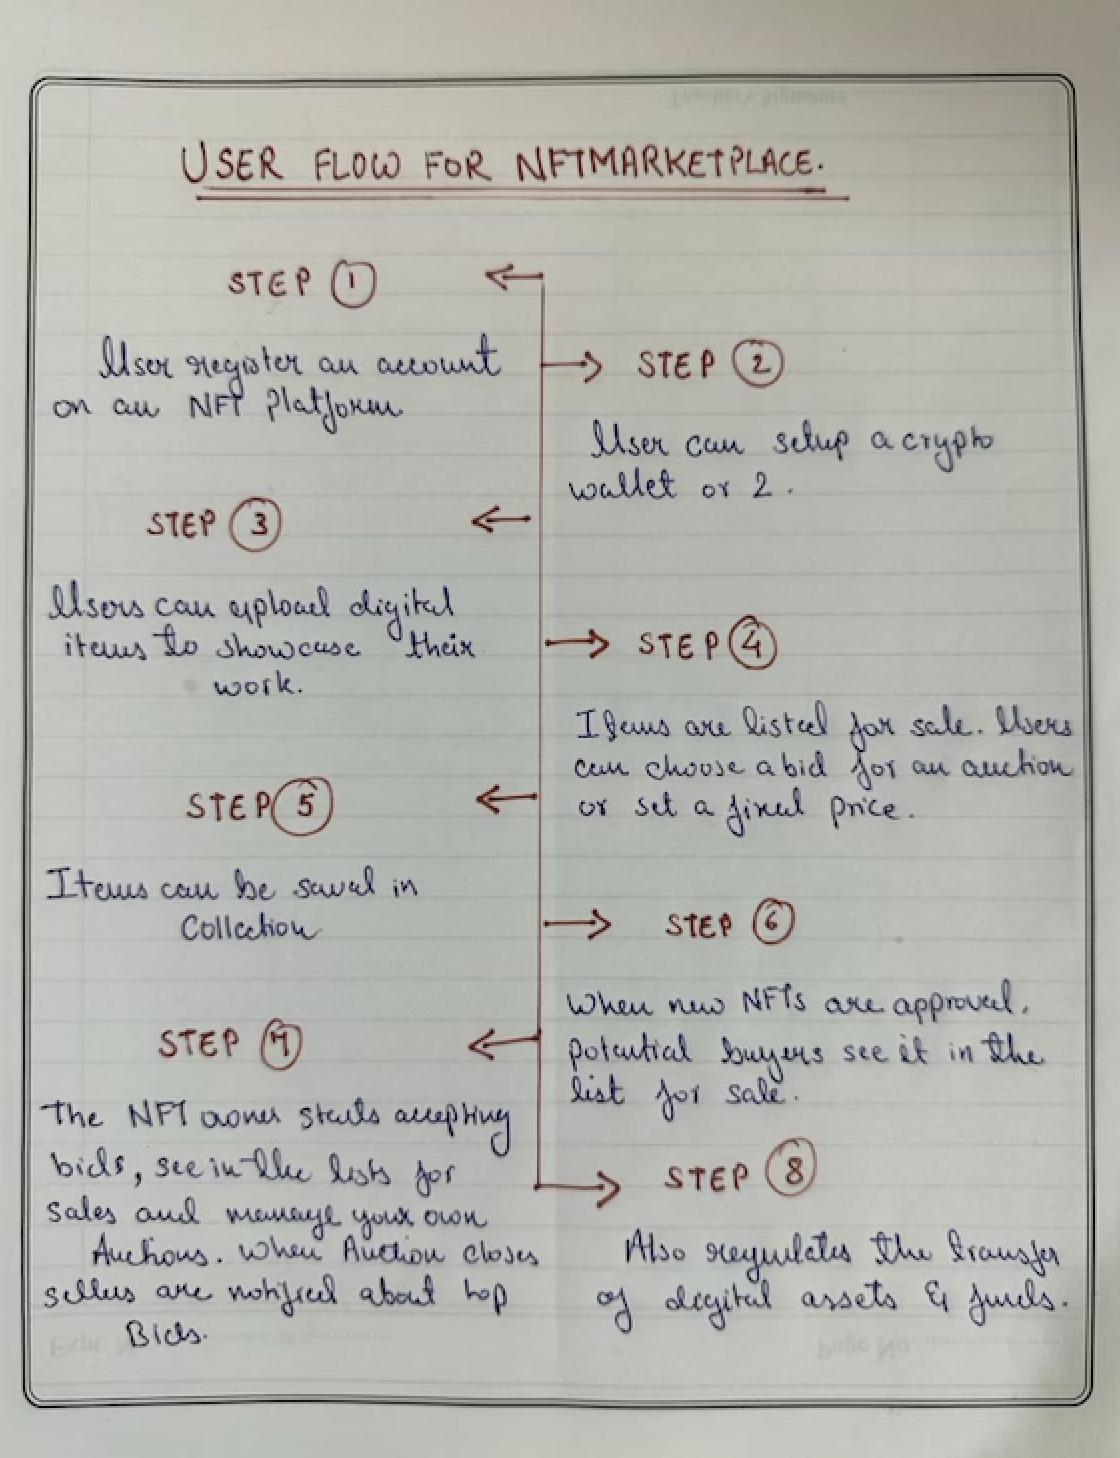 USER FLOW FOR NFTMARKETPLACE.
STEP 1
User register an account
on an NFT Platform
STEP 2
User can setup a crypto
wallet or 2.
STEP 3
Users can upload digital
items to showcase their
work.
STEP 4
Items are listed for sale. Users
can choose a bid for an auction
or set a fixed price.
STEP 5
Items can be saved in
Collection
STEP 6
When new NFTs are approved,
potential buyers see it in the
list for sale.
STEP 7
The NFT owner starts accepting
bids, see in the lists for
sales and manage your own
Auctions. When Auction closes
sellers are notified about top
Bids.
STEP 8
Also regulates the transfer
of digital assets & funds.